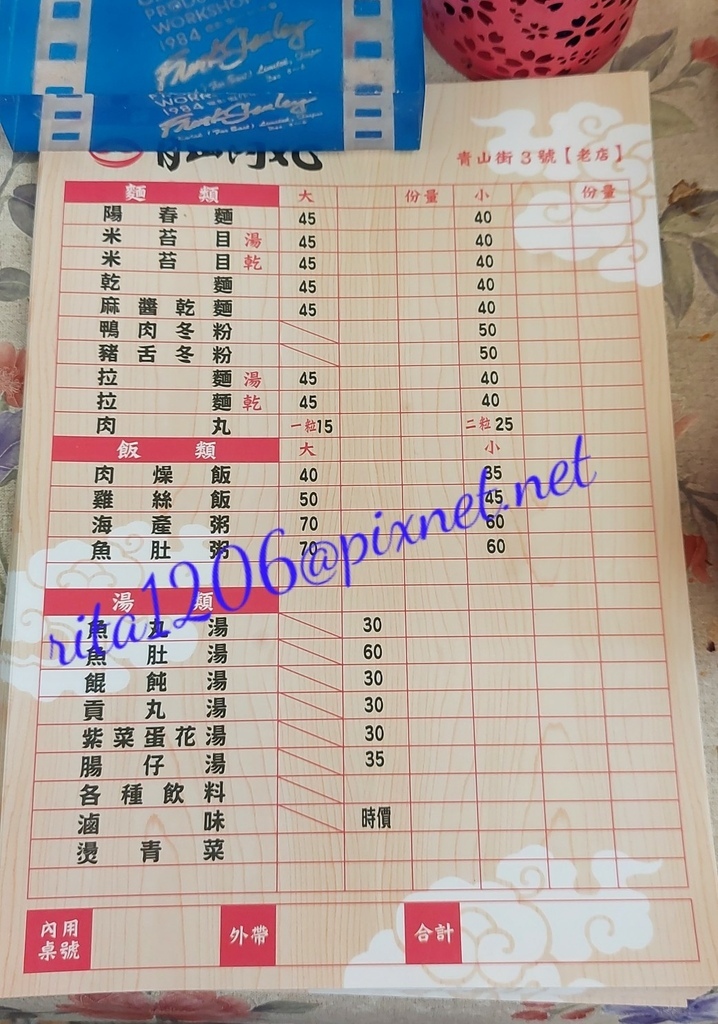 PRODU
WORKSHO
1984
1984
青山街3號【老店】
麵類 大 份量 小 份量
陽春麵 45 40
米苔目湯 45 40
米苔目乾 45 40
乾麵 45 40
麻醬乾麵 45 40
鴨肉冬粉 50
豬舌冬粉 50
拉麵湯 45 40
拉麵乾 45 40
肉丸 一粒15 二粒25
飯類 大 小
肉燥飯 40 35
雞絲飯 50 45
海產粥 70 60
魚肚粥 70 60
rita1206@pixnet.net
湯類
魚丸湯 30
魚肚湯 60
餛飩湯 30
貢丸湯 30
紫菜蛋花湯 30
腸仔湯 35
各種飲料
滷味 時價
燙青菜
內用桌號 外帶 合計